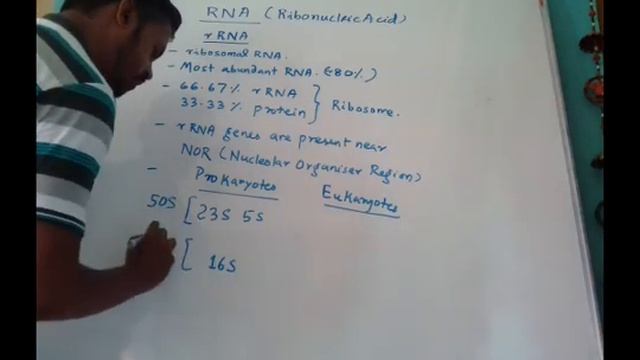 RNA (Ribonucleic Acid)
rRNA
- ribosomal RNA.
- Most abundant RNA. (~80%)
- 66.67% rRNA
33.33% protein } Ribosome.
- rRNA genes are present near
NOR (Nucleolar Organiser Region)
- Prokaryotes Eukaryotes
50S [ 23S 5S
[ 16S